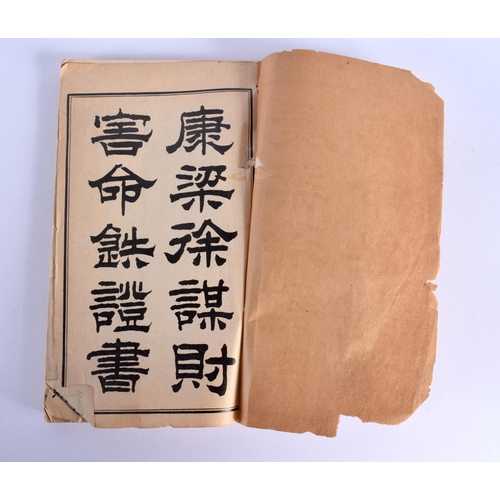 康梁徐謀財
害命鉄證書